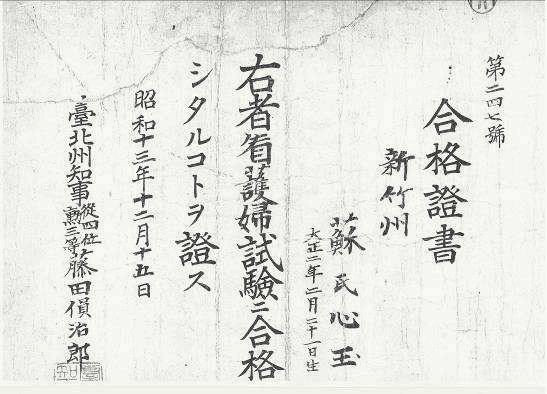 第二四七號
合格證書
新竹州
蘇氏心玉
大正二年二月二十一日生
右者看護婦試驗ニ合格
シタルコトヲ證ス
昭和十三年十二月十五日
臺北州知事從四位勳三等藤田傊治郎